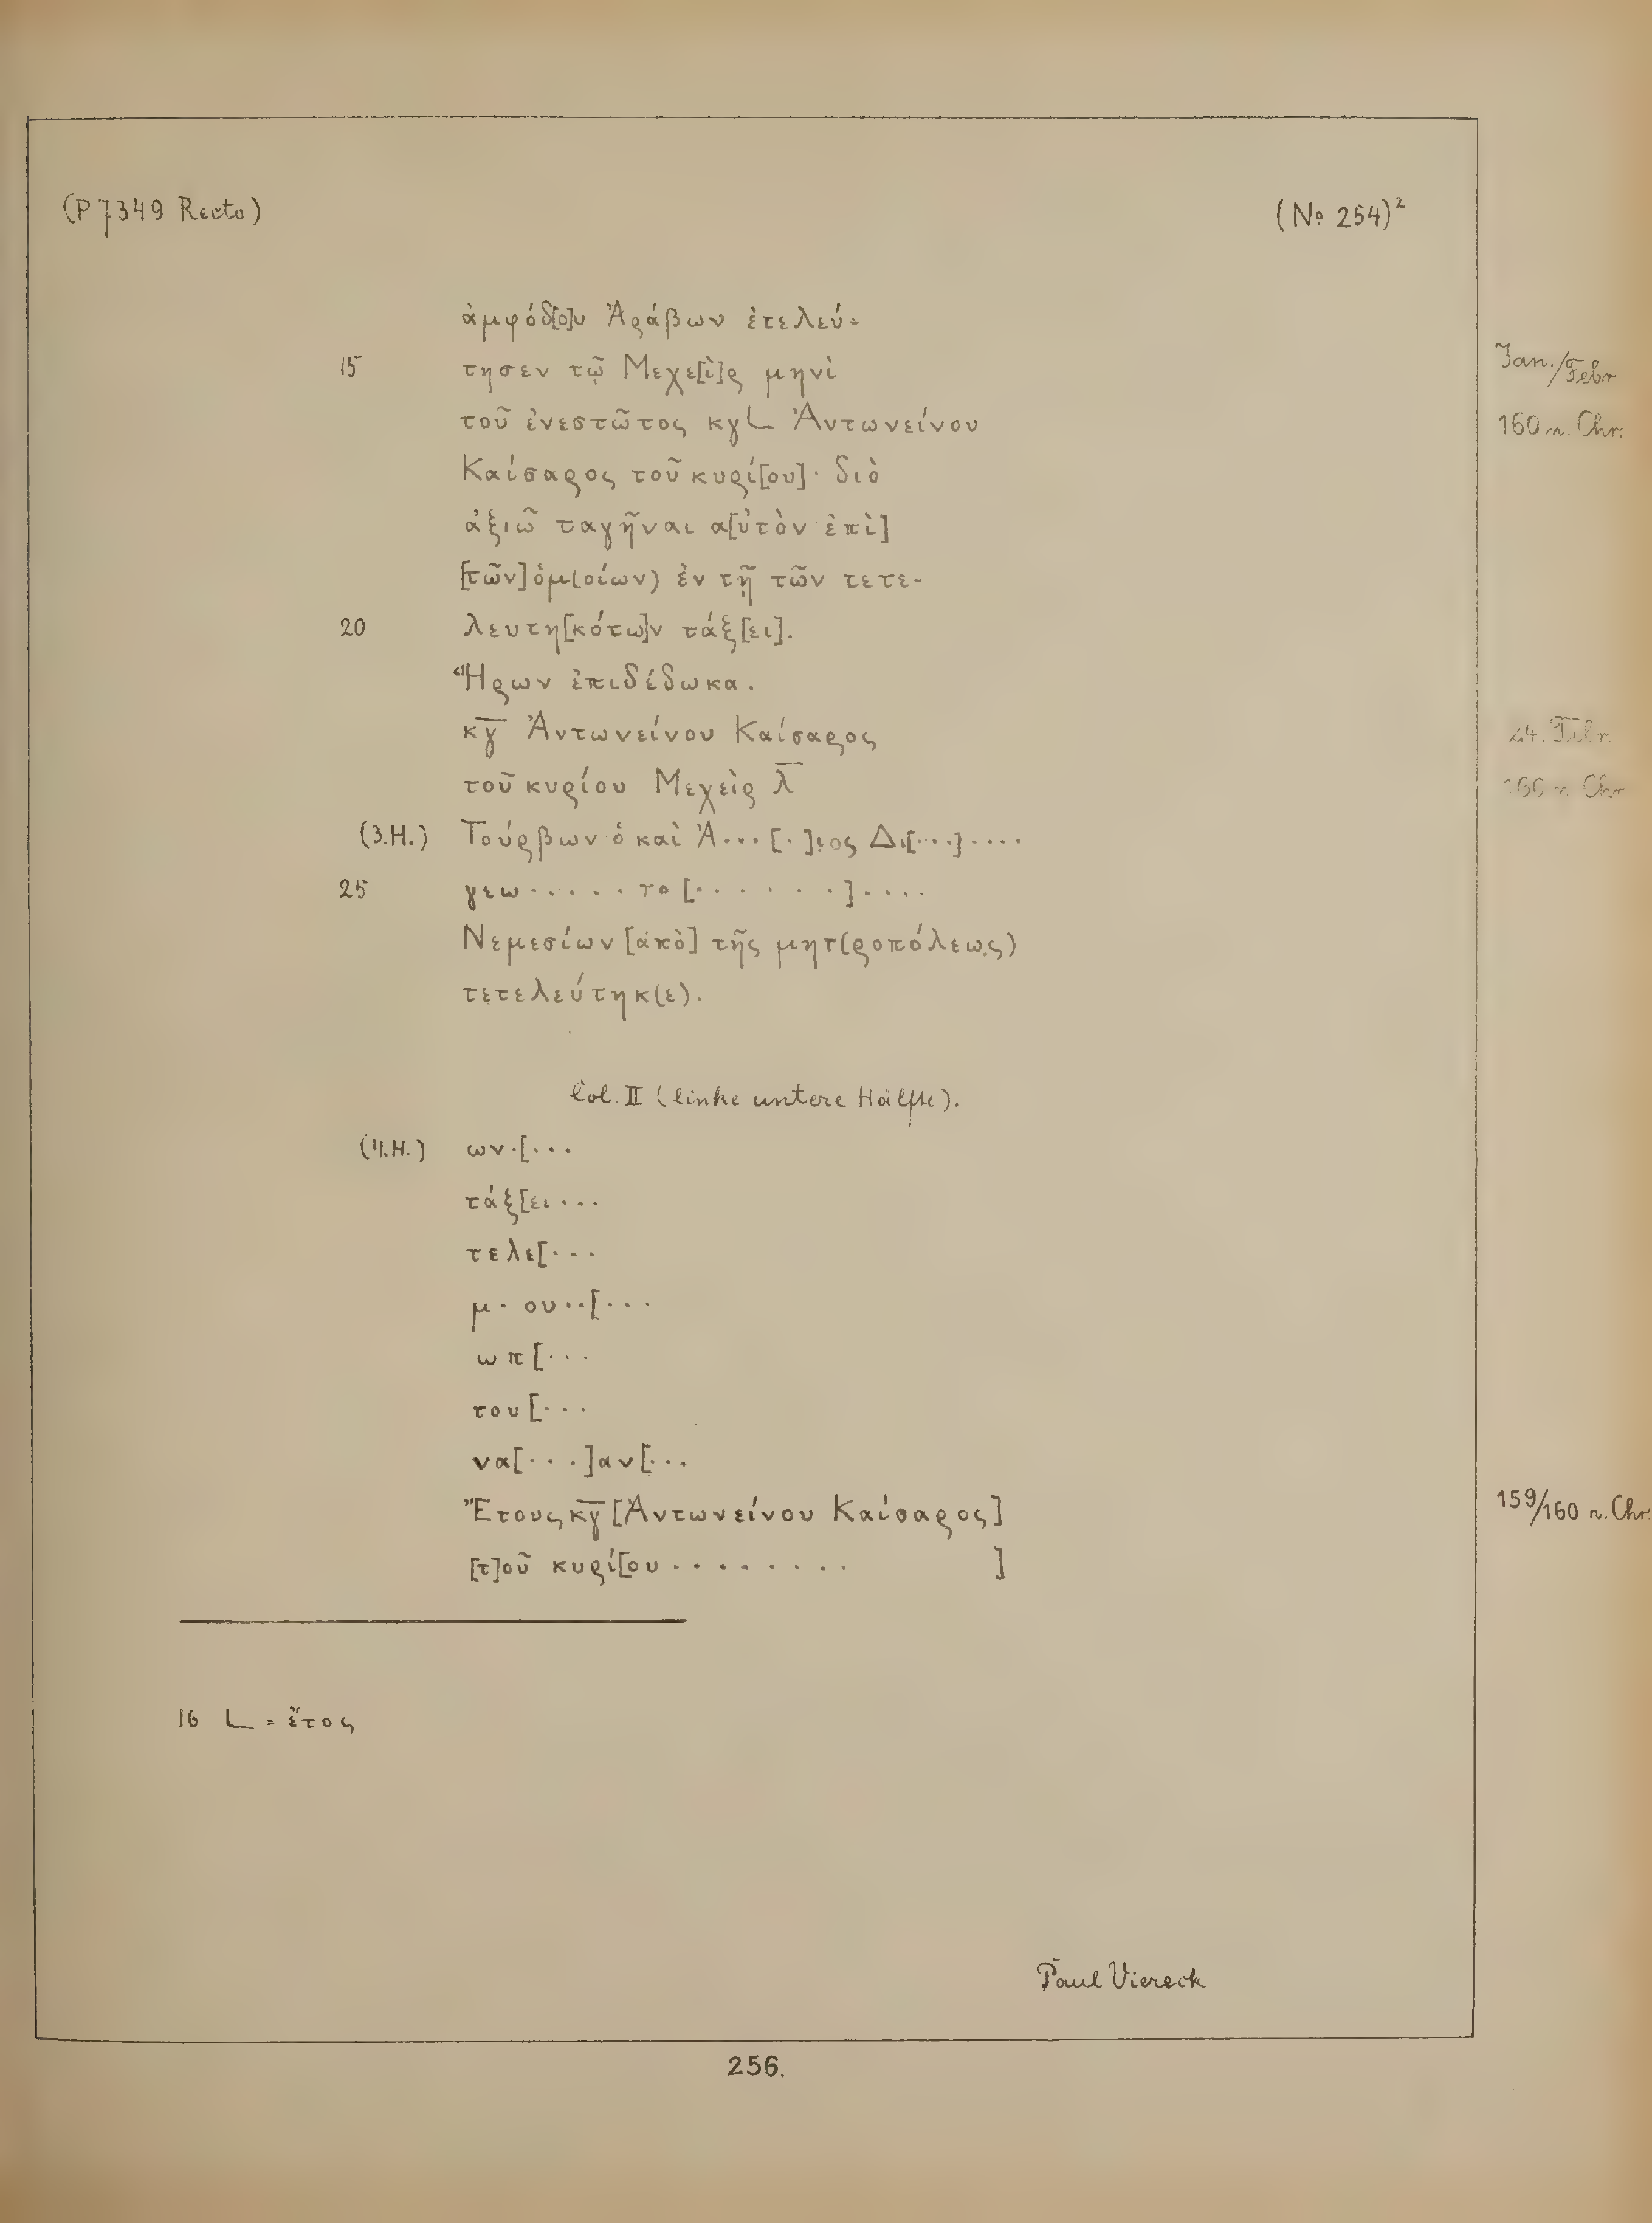 (P 7349 Recto) (No 254)²
ἀμφόδ[ο]υ Ἀράβων ἐτελεύ-
15 τησεν τῷ Μεχε[ὶ]ρ μηνὶ Jan./Febr
τοῦ ἐνεστῶτος κγL Ἀντωνείνου 160 n. Chr.
Καίσαρος τοῦ κυρί[ου]· διὸ
ἀξιῶ ταγῆναι α[ὐτὸν ἐπὶ]
[τῶν] ὁμ(οίων) ἐν τῇ τῶν τετε-
20 λευτη[κότω]ν τάξ[ει].
Ἥρων ἐπιδέδωκα.
κγ̅ Ἀντωνείνου Καίσαρος 24. Febr.
τοῦ κυρίου Μεχεὶρ λ̅ 160 n Chr
(3.H.) Τούρβων ὁ καὶ Ἀ...[.]ι̣ος Δι[...]....
25 γεω.....το[......]....
Νεμεσίων [ἀπὸ] τῆς μητ(ροπόλεως)
τετελεύτηκ(ε).
Col. II (linke untere Hälfte).
(4.H.) ων.[...
τάξ[ει...
τελε[...
μ. ου..[...
ωπ[...
του[...
να[...]αν[...
Ἔτους κγ̅ [Ἀντωνείνου Καίσαρος] 159/160 n. Chr.
[τ]οῦ κυρί[ου ........ ]
16 L = ἔτος
Paul Viereck
256.